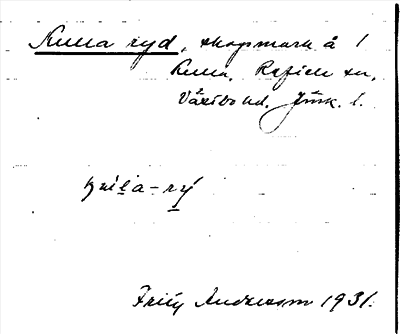 Kulla ryd, skogsmark å 1
Kulla, Reftele sn,
Västbo hd, Jönk. l.
Andersson 1931.